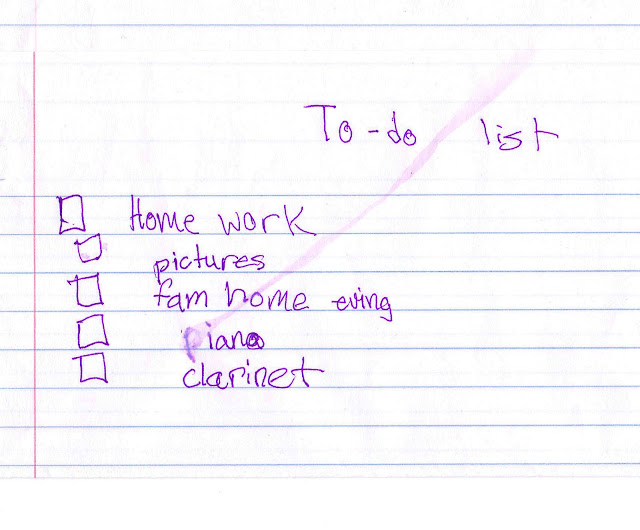 To-do list
Home work
pictures
fam home eving
piano
clarinet